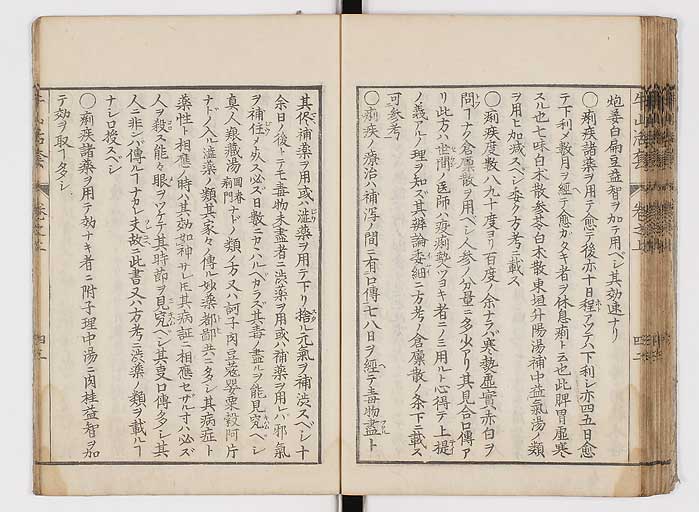 炮姜白扁豆益智ヲ加テ用ベシ其効速ナリ
〇痢疾諸薬ヲ用テ愈テ後亦十日程アツテハ下利シ亦四五日愈
テ下利メ數月ヲ經テ愈ガタキ者ヲ休息痢ト云也此脾胃虛寒
スル也七味白朮散參苓白朮散東垣升陽湯補中益氣湯ノ類
ヲ用ヒ加減スベシ委ク方考ニ載ス
〇痢疾度數八九十度ヨリ百度ノ余ナラバ寒熱虛實赤白ヲ
問ハナク倉廩散ヲ用ベシ人參ノ分量ニ多少アリ其見合口傳ア
リ此方ハ世間ノ医師ハ疫痢熱ツヨキ者ニノミ用ルト心得テ上提
ノ義アルノ理ヲ知ズ其辨論委細ニ方考ノ倉廩散ノ条下ニ載ス
可參考
〇痢疾ノ療治ハ補瀉ノ間ニ有口傳七八日ヲ經テ毒物盡ト
其侭補薬ヲ用或澁薬ヲ用テ下リ捨ル元氣ヲ補渋スベシ十
余日ノ後トテモ毒物未盡者ニ渋薬ヲ用或ハ補薬ヲ用レバ邪氣
ヲ補住メ必ズ日數ニセハルベカラズ其毒ノ盡ルヲ能見究ベシ
真人養臓湯回春痢門ナドノ類ノ方又ハ訶子肉豆蔻罌粟殼阿片
ナドノ入ル澁薬ノ類其家々ノ傳ル妙薬都鄙共ニ多シ其病症ト
薬性ト相應ノ時ハ其効如神サレ𪜈其病証ニ相應セザル寸ハ必ズ
人ヲ殺ス能々眼ヲツケテ其時節ヲ見究ベシ其㕝口傳多シ其
人ニ非ンバ傳ル丁ナカレ夫故ニ此書又ハ方考ニ渋薬ノ類ヲ載ル丁
ナシ口授スベシ
〇痢疾諸薬ヲ用テ効ナキ者ニ附子理中湯ニ肉桂益智ヲ加
テ効ヲ取丁多シ
牛山活套
卷之上
四二
牛山活套
卷之上
四三